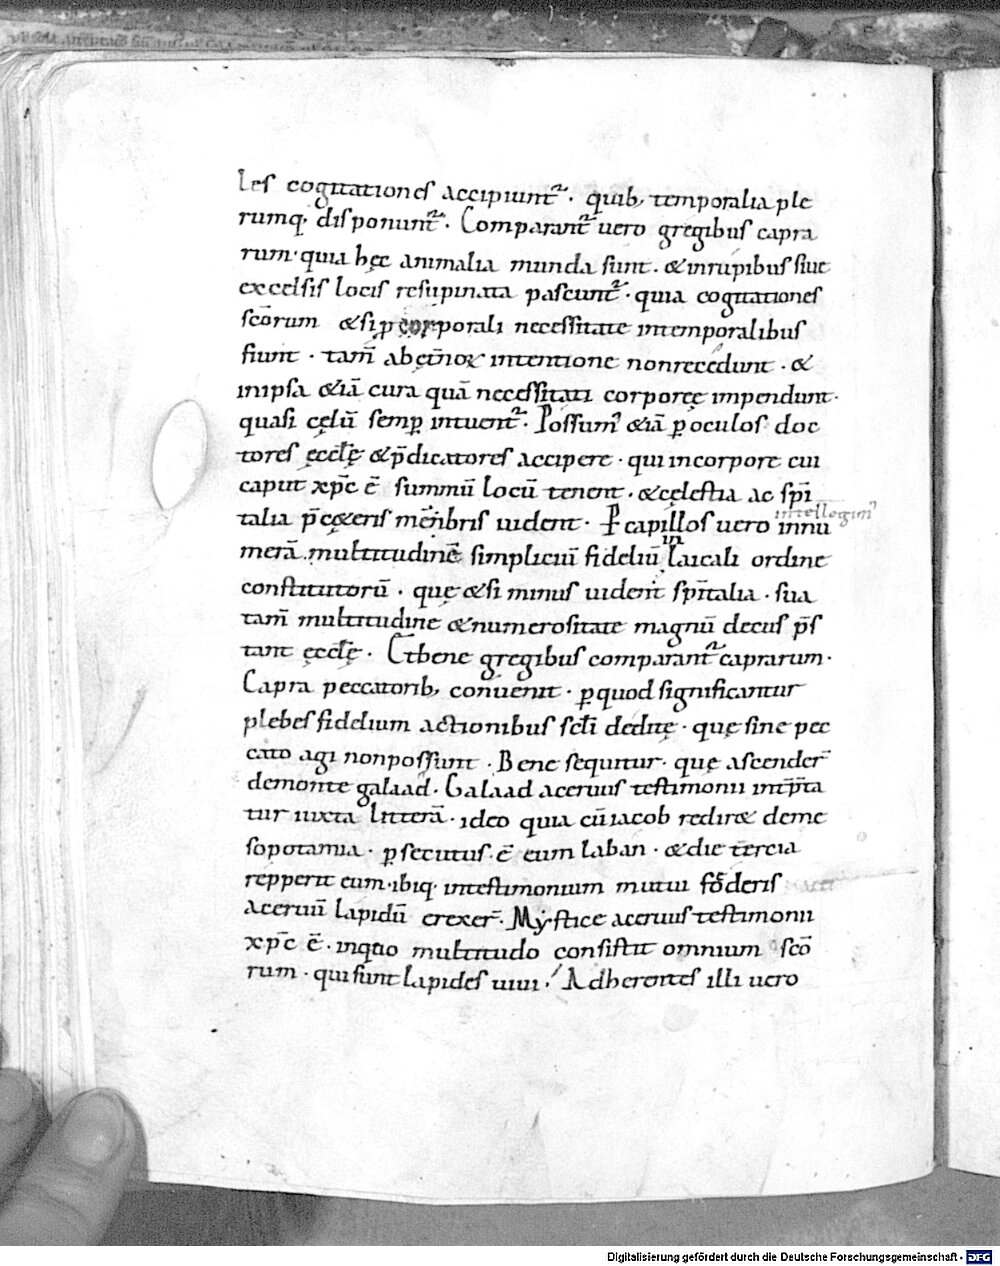 les cogitationes accipiunt᷑. quib; temporalia ple
rumq; disponunt᷑. Comparant᷑ uero gregibus capra
rum. quia hęc animalia munda sunt. & inrupibus siue
excelsis locis resupinata pascunt᷑. quia cogitationes
sc̄orum &si ꝓ corporali necessitate intemporalibus
fiunt. tam̄ ab ęt̄noꝝ intentione nonrecedunt. &
inipsa &iā cura quā necessitati corporeę impendunt.
quasi cęlū semꝑ intuent᷑. Possum᷒ &iā ꝑ oculos doc
tores ęccl̄ę & p̄dicatores accipere. qui incorpore cui
caput xp̄c ē summū locū tenent. & cęlestia ac sp̄i
talia p̄ cęteris mēbris uident. P capillos uero intellegim᷒ innu
merā multitudinē simpliciū fideliū in laicali ordine
constitutorū. quę &si minus uident sp̄italia. sua
tam̄ multitudine & numerositate magnū decus p̄s
tant ęccl̄ę. Et bene gregibus comparant᷑ caprarum.
Capra peccatorib; conuenit. ꝑ quod significantur
plebes fidelium actionibus sc̄li deditę. quę sine pec
cato agi nonpossunt. Bene sequitur. quę ascender̄
demonte galaad. Galaad aceruus testimonii int̄p̄ta
tur iuxta litterā. ideo quia cū iacob redir& deme
sopotamia. ꝑsecutus ē eum laban. & die tercia
repperit eum. ibiq; intestimonium mutui foederis
aceruū lapidū erexer̄. Mystice aceruus testimonii
xp̄c ē. inquo multitudo consistit omnium sc̄o
rum. qui sunt lapides uiui. Adherentes illi uero
Digitalisierung gefördert durch die Deutsche Forschungsgemeinschaft - DFG